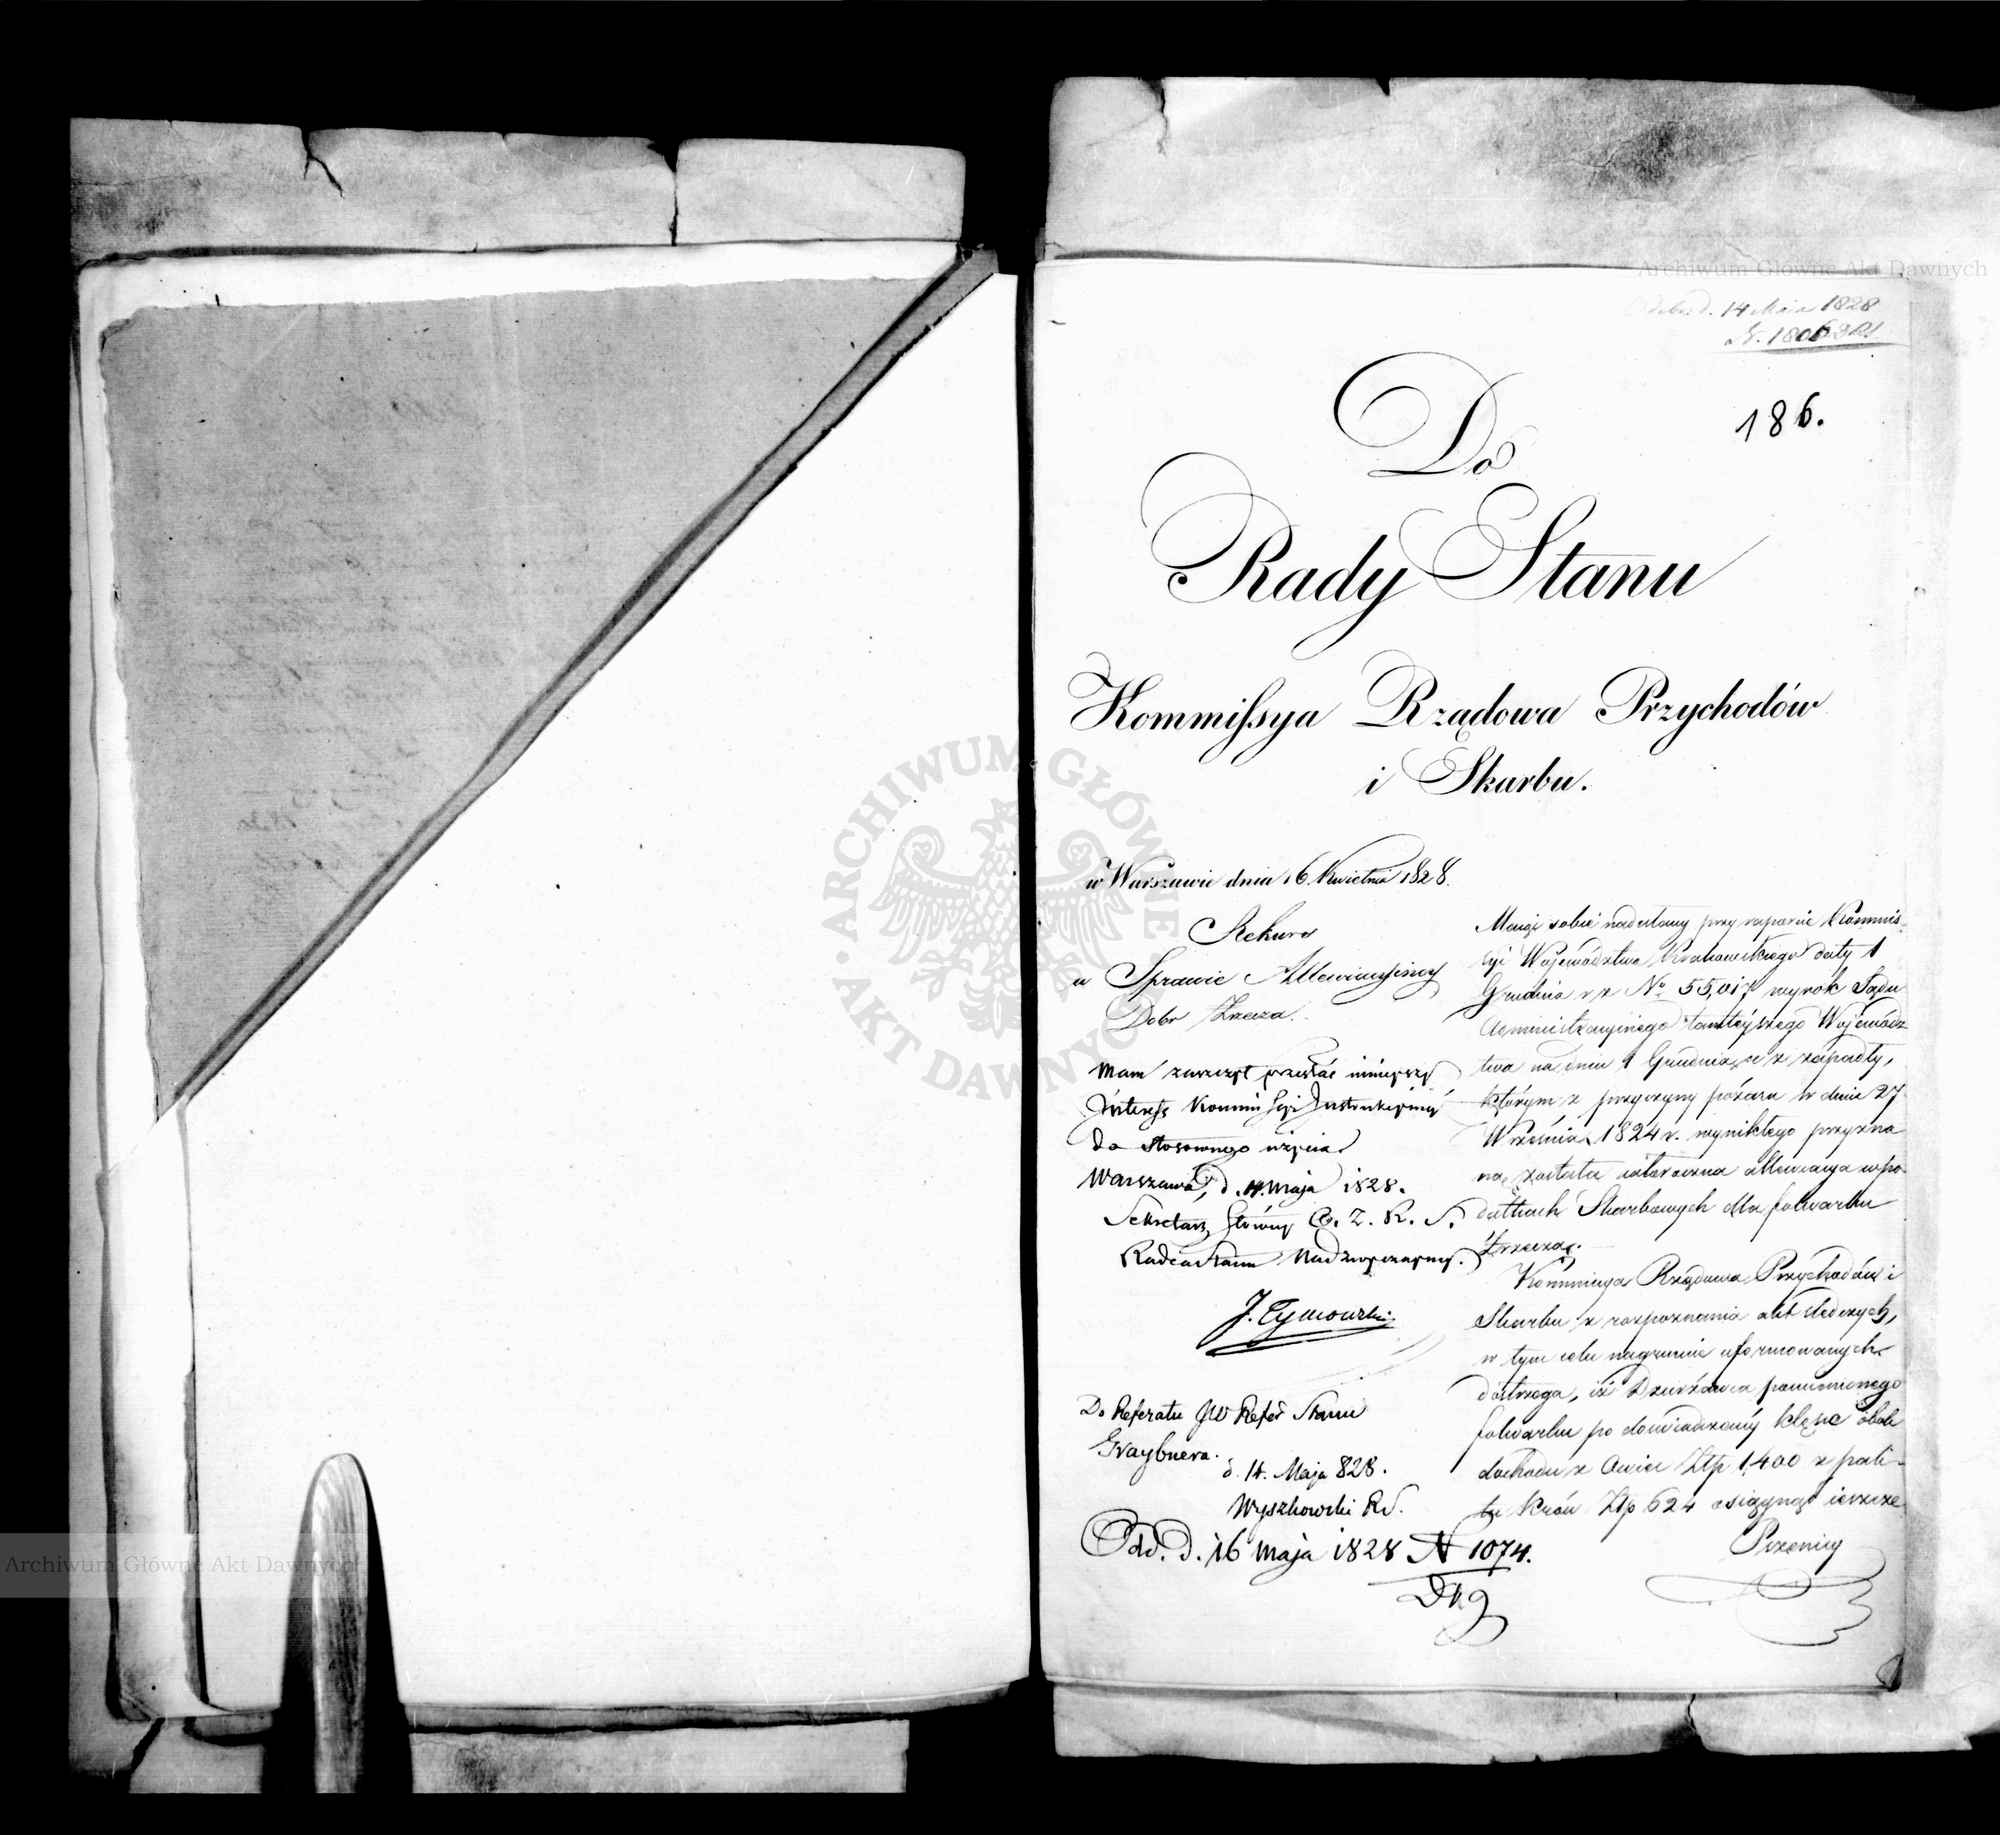 Archiwum Główne Akt Dawnych
d. 14 Maia 1828
N. 18063 RS.
186.
Do
Rady Stanu
Kommissya Rządowa Przychodów
i Skarbu.
w Warszawie dnia 16 Kwietnia 1828.
Rekurs
w Sprawie Allewiacyjney
Dobr Zrecza.
Mam zaszczyt przesłać ninieyszy
Interess Kommissyi Instrukcyiney
do stosownego użycia
Warszawa, d. 14 Maja 1828.
Sekretarz Główny
Radca Stanu Nadzwyczayny.
J. Tymowski
Do Referatu JW Refer Stanu
Graybnera.
d. 14. Maja 828.
Wyszkowski RS.
Odd. d. 16 maja 1828 N 1074.
Maiąc sobie nadesłany przy raporcie Kommis-
syi Województwa Krakowskiego daty 1
Grudnia r z No 55,017 wyrok Sądu
Administracyinego tamteyszego Wojewódz
twa na dniu 1 Grudnia r z zapadły,
którym z przyczyny pożaru w dniu 27
Września 1824 r. wynikłego przyzna
ną została allewiacya w po-
datkach Skarbowych dla folwarku
Zrecza.
Kommissya Rządowa Przychodów i
Skarbu z rozpoznania akt śledczych,
w tym celu na gruncie uformowanych
dostrzega, iż Dzierżawca pomienionego
folwarku po doświadczoney klęsce obok
dochodu z Owiec Złp 1,400 z pach-
tu Krów Złp 624 osiągnął ieszcze
Pszenicy
ARCHIWUM GŁÓWNE AKT DAWNYCH
Archiwum Główne Akt Dawnych